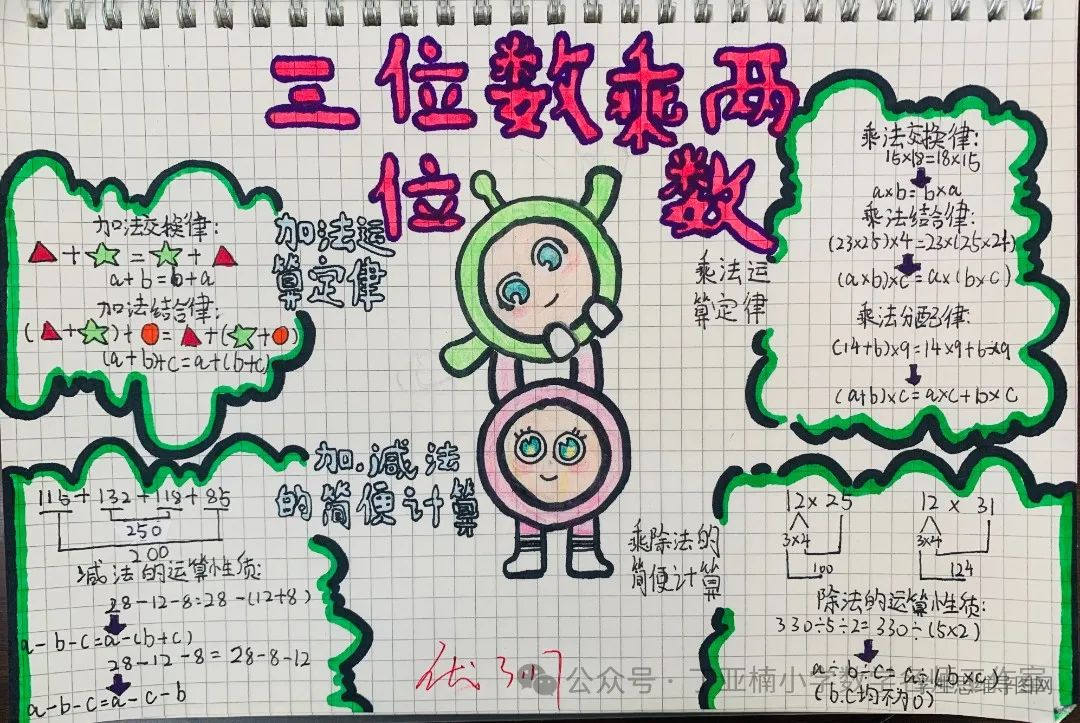 三位数乘两
位 数
加法交换律:
▲+☆=☆+▲
a+b=b+a
加法结合律:
(▲+☆)+●=▲+(☆+●)
(a+b)+c=a+(b+c)
加法运
算定律
乘法交换律:
15×18=18×15
a×b=b×a
乘法结合律:
(23×25)×4=23×(25×24)
(a×b)×c=a×(b×c)
乘法分配律:
(14+6)×9=14×9+6×9
(a+b)×c=a×c+b×c
乘法运
算定律
加.减法
的简便计算
115+132+118+85
250
200
减法的运算性质:
28-12-8=28-(12+8)
a-b-c=a-(b+c)
28-12-8=28-8-12
a-b-c=a-c-b
乘除法的
简便计算
12×25
3×4
100
12×31
3×4
124
除法的运算性质:
330÷5÷2=330÷(5×2)
a÷b÷c=a÷(b×c)
(b.c均不为0)
公众号·丁亚楠小学数